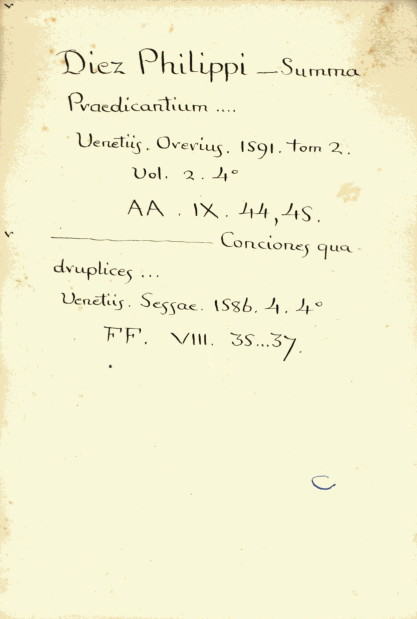 Diez Philippi — Summa
Praedicantium ....
Venetiis. Overius. 1591. tom 2.
Vol. 2. 4°
AA. IX. 44, 45.
———— Conciones qua-
druplices ...
Venetiis. Sessae. 1586. 4. 4°
FF. VIII. 35...37.
C